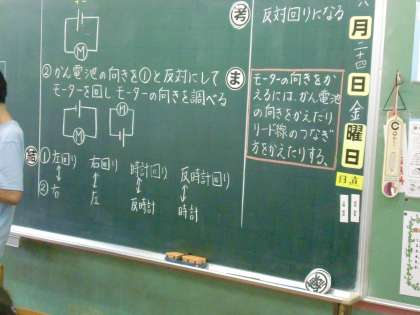 M
②かん電池の向きを①と反対にして
モーターを回しモーターの向きを調べる
M
M
結
①左回り 右回り 時計回り 反時計回り
②右 左 反時計 時計
考
反対回りになる
ま
モーターの向きをか
えるには、かん電池
の向きをかえたり、
リード線のつなぎ
方をかえたりする。
六
月
二十四
日
金
曜
日
日直